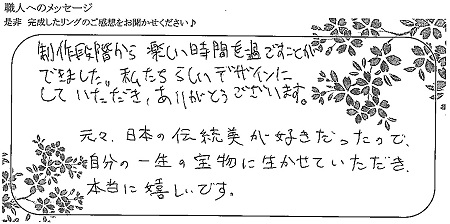 職人へのメッセージ
是非 完成したリングのご感想をお聞かせください♪
制作段階から 楽しい時間を過ごすことが
できました。私たちらしいデザインに
していただき、ありがとうございます。
元々、日本の伝統美が好きだったので、
自分の一生の宝物に生かせていただき、
本当に嬉しいです。